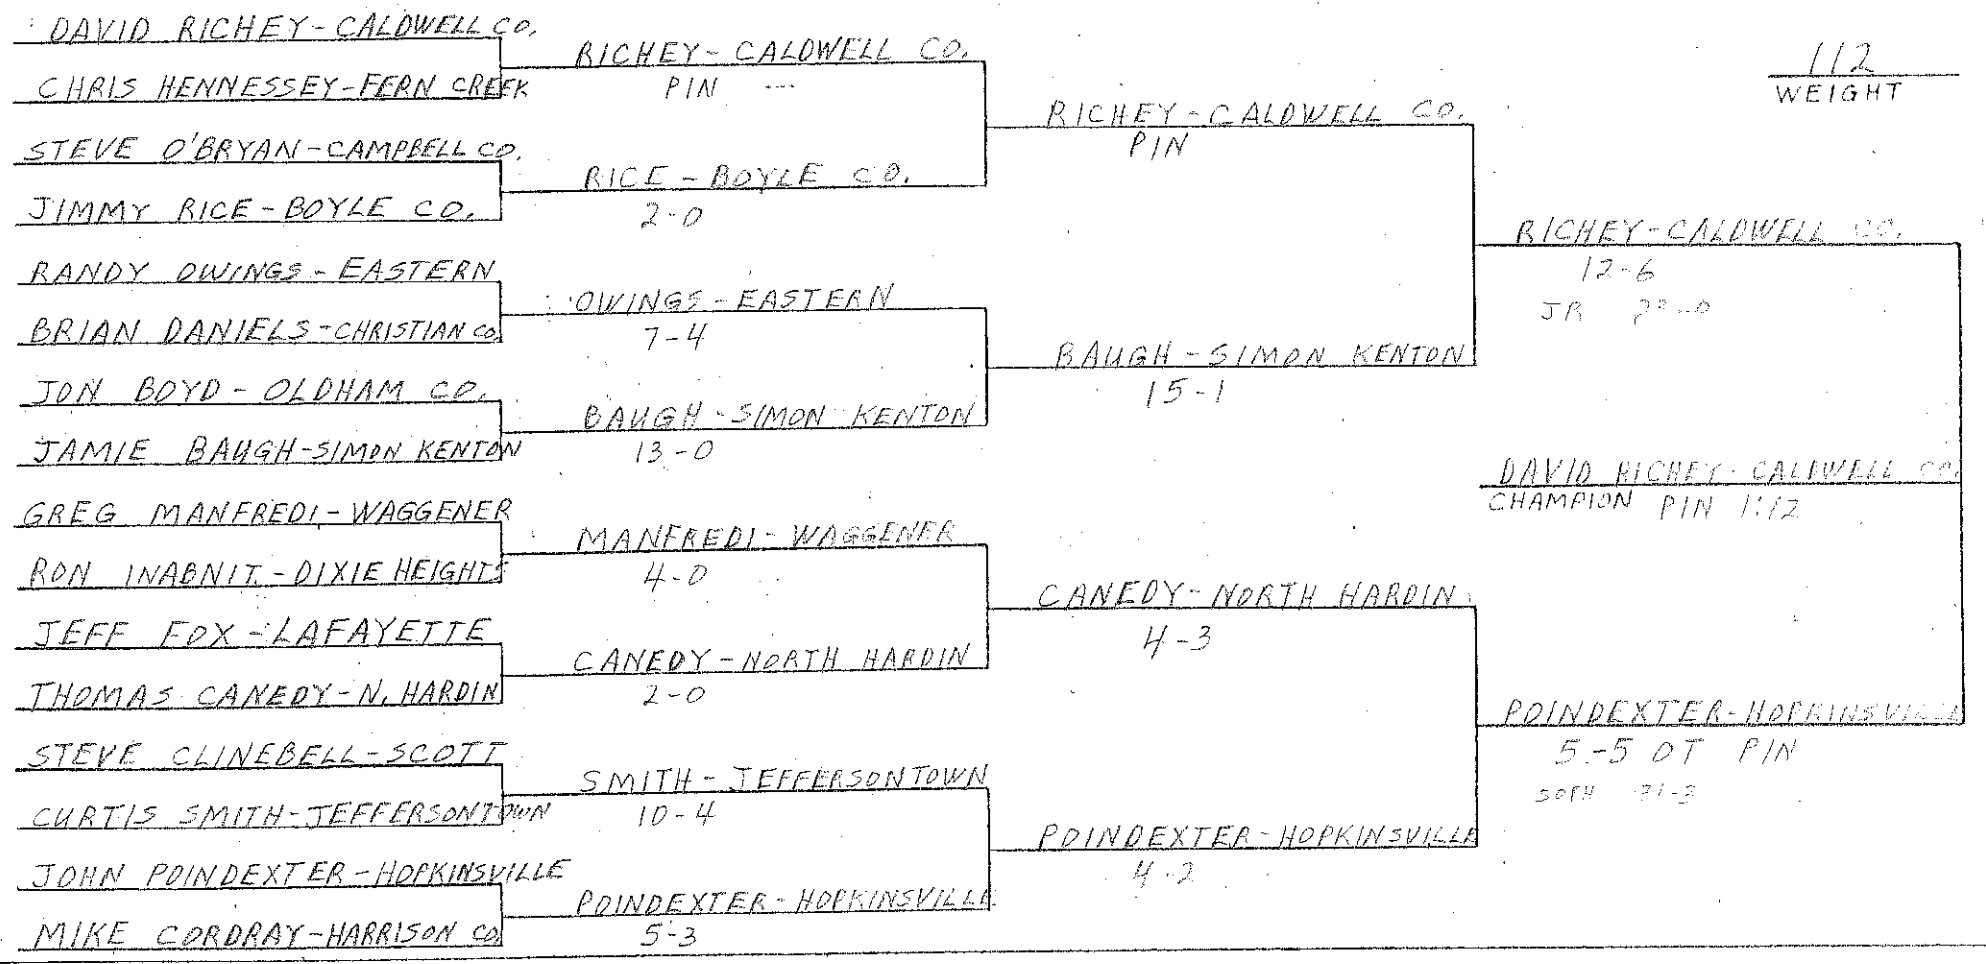 DAVID RICHEY-CALDWELL CO.
CHRIS HENNESSEY-FERN CREEK
STEVE O'BRYAN-CAMPBELL CO.
JIMMY RICE-BOYLE CO.
RANDY OWINGS-EASTERN
BRIAN DANIELS-CHRISTIAN CO.
JON BOYD-OLDHAM CO.
JAMIE BAUGH-SIMON KENTON
GREG MANFREDI-WAGGENER
RON INABNIT-DIXIE HEIGHTS
JEFF FOX-LAFAYETTE
THOMAS CANEDY-N. HARDIN
STEVE CLINEBELL-SCOTT
CURTIS SMITH-JEFFERSONTOWN
JOHN POINDEXTER-HOPKINSVILLE
MIKE CORDRAY-HARRISON CO.
RICHEY-CALDWELL CO.
PIN
RICE-BOYLE CO.
2-0
OWINGS-EASTERN
7-4
BAUGH-SIMON KENTON
13-0
MANFREDI-WAGGENER
4-0
CANEDY-NORTH HARDIN
2-0
SMITH-JEFFERSONTOWN
10-4
POINDEXTER-HOPKINSVILLE
5-3
RICHEY-CALDWELL CO.
PIN
BAUGH-SIMON KENTON
15-1
CANEDY-NORTH HARDIN
4-3
POINDEXTER-HOPKINSVILLE
4-2
112
WEIGHT
RICHEY-CALDWELL CO.
12-6
JR
POINDEXTER-HOPKINSVILLE
5-5 OT PIN
SOPH
DAVID RICHEY-CALDWELL CO.
CHAMPION PIN 1:12